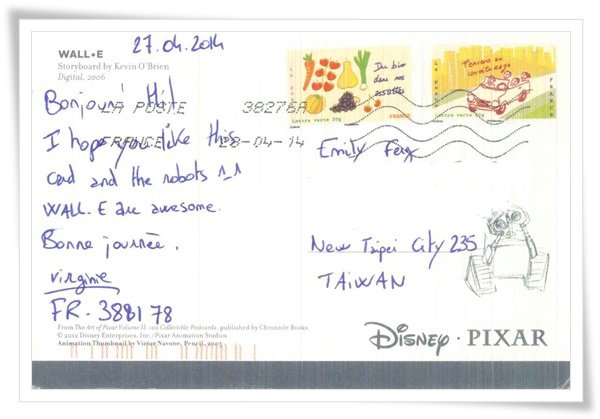 WALL•E
Storyboard by Kevin O'Brien
Digital, 2006
27.04.2014
Bonjour! Hi!
I hope you like this
card and the robots ^^
WALL.E are awesome.
Bonne journée.
virginie
FR. 388178
LA POSTE 38276A
FRANCE 28-04-14
Du bio
dans nos
assiettes
Lettre verte 20g
FRANCE
Pensons au
covoiturage
Lettre verte 20g
FRANCE
Emily
New Taipei City 235
TAIWAN
From The Art of Pixar Volume II: 100 Collectible Postcards, published by Chronicle Books.
© 2012 Disney Enterprises, Inc./Pixar Animation Studios
Animation Thumbnail by Victor Navone, Pencil, 2005
Disney · PIXAR